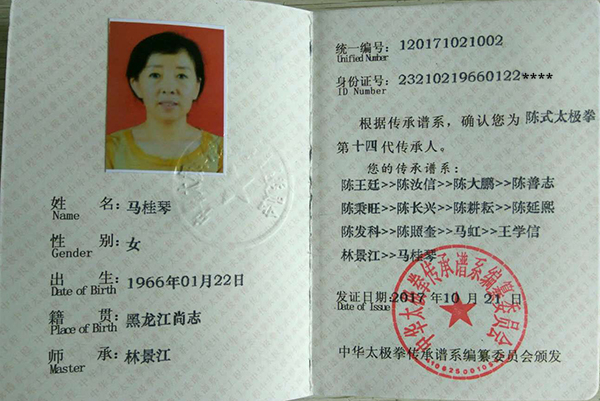 姓 名: 马桂琴
Name
性 别: 女
Gender
出 生: 1966年01月22日
Date of Birth
籍 贯: 黑龙江尚志
Place of Birth
师 承: 林景江
Master
统一编号: 120171021002
Unified Number
身份证号: 23210219660122****
ID Number
根据传承谱系,确认您为 陈式太极拳
第 十四 代传承人。
您的传承谱系:
陈王廷>>陈汝信>>陈大鹏>>陈善志
陈秉旺>>陈长兴>>陈耕耘>>陈延熙
陈发科>>陈照奎>>马虹>>王学信
林景江>>马桂琴
发证日期: 2017 年 10 月 21 日
Date of Issue
中华太极拳传承谱系编纂委员会
中华太极拳传承谱系编纂委员会颁发